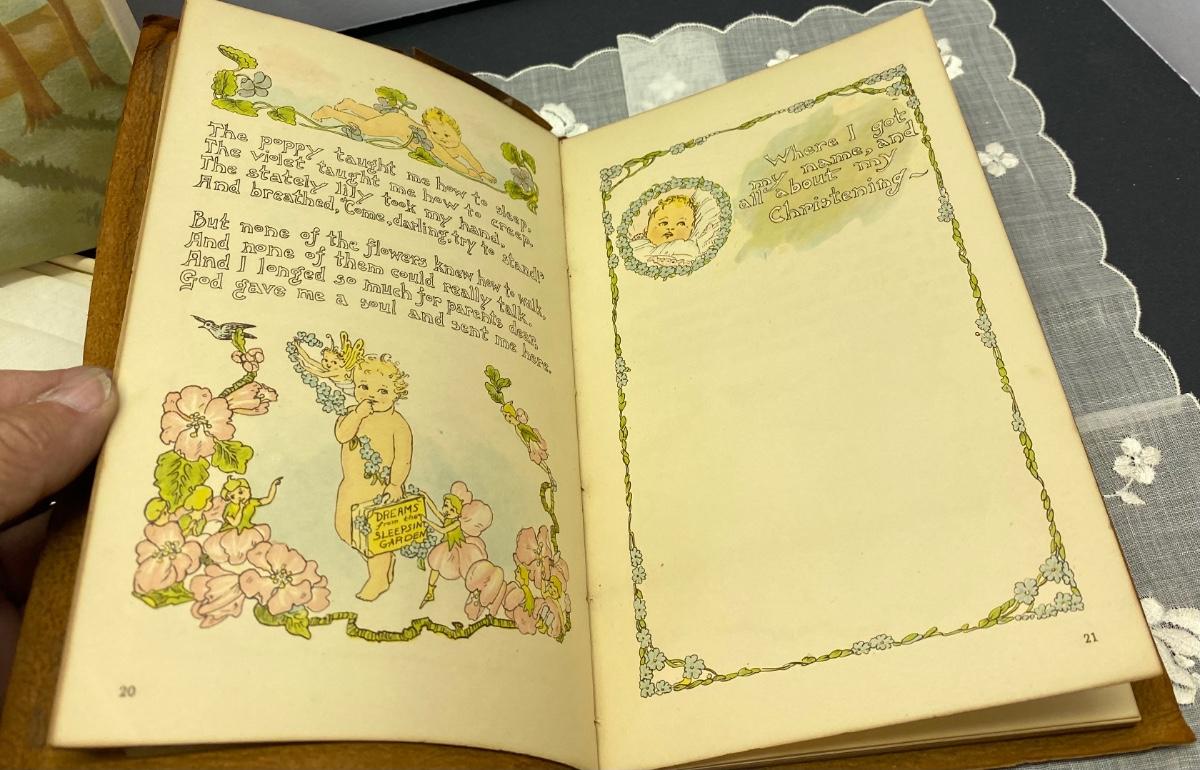 The poppy taught me how to sleep,
The violet taught me how to creep,
The stately lily took my hand,
And breathed, "Come, darling, try to stand!"
But none of the flowers knew how to walk,
And none of them could really talk.
And I longed so much for parents dear,
God gave me a soul and sent me here.
DREAMS
from the
SLEEPSIN
GARDEN
20
Where I got
my name, and
all about my
Christening~
21